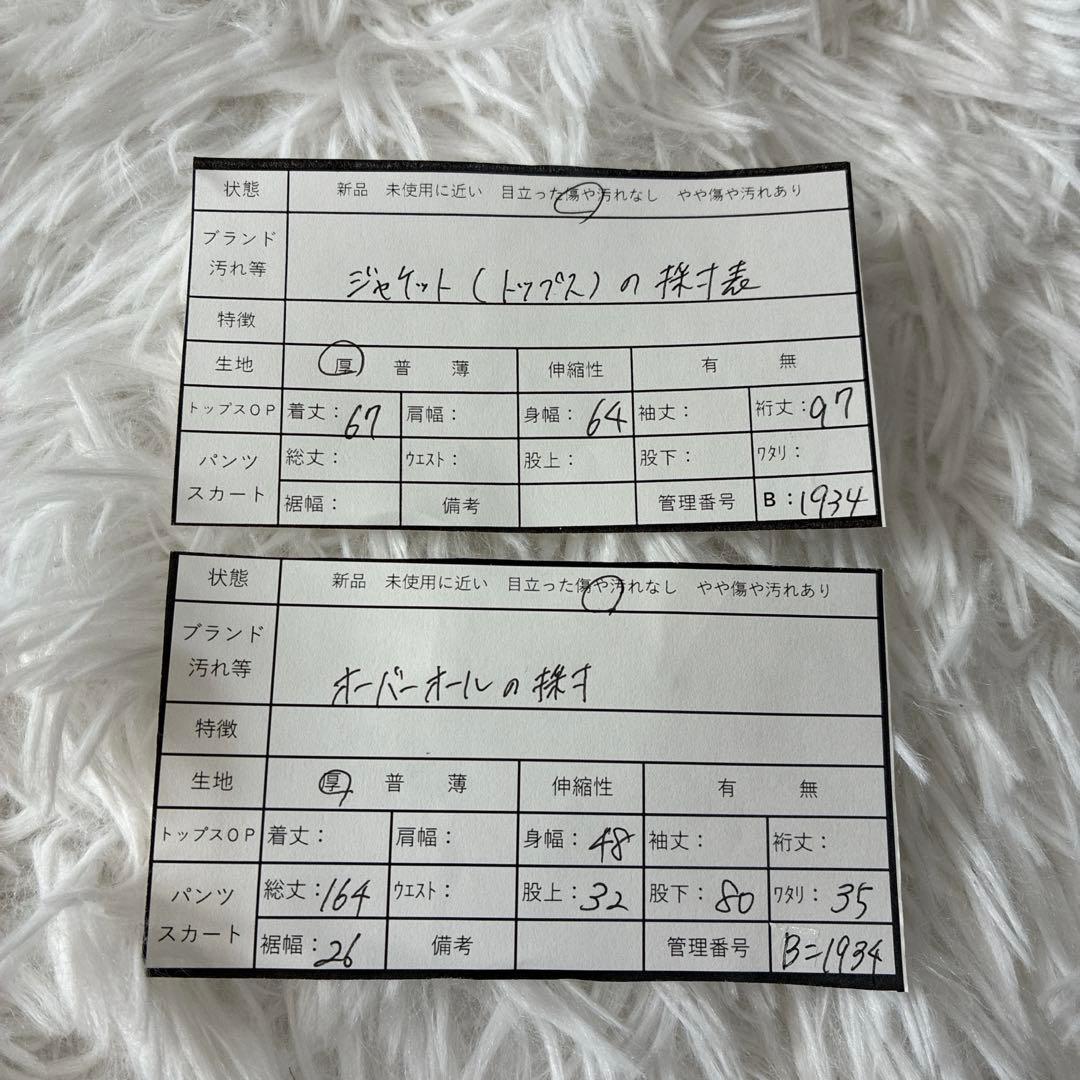 状態 新品 未使用に近い 目立った傷や汚れなし やや傷や汚れあり
ブランド
汚れ等
ジャケット(トップス)の採寸表
特徴
生地 厚 普 薄 伸縮性 有 無
トップスOP 着丈：67 肩幅： 身幅：64 袖丈： 裄丈：97
パンツ
スカート
総丈： ウエスト： 股上： 股下： ワタリ：
裾幅： 備考 管理番号 B：1934
状態 新品 未使用に近い 目立った傷や汚れなし やや傷や汚れあり
ブランド
汚れ等
オーバーオールの採寸
特徴
生地 厚 普 薄 伸縮性 有 無
トップスOP 着丈： 肩幅： 身幅：48 袖丈： 裄丈：
パンツ
スカート
総丈：164 ウエスト： 股上：32 股下：80 ワタリ：35
裾幅：26 備考 管理番号 B=1934